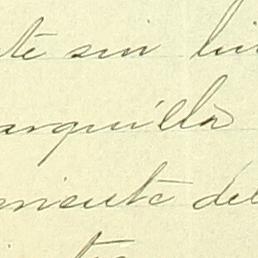 te sin lin
arquilla
niente del